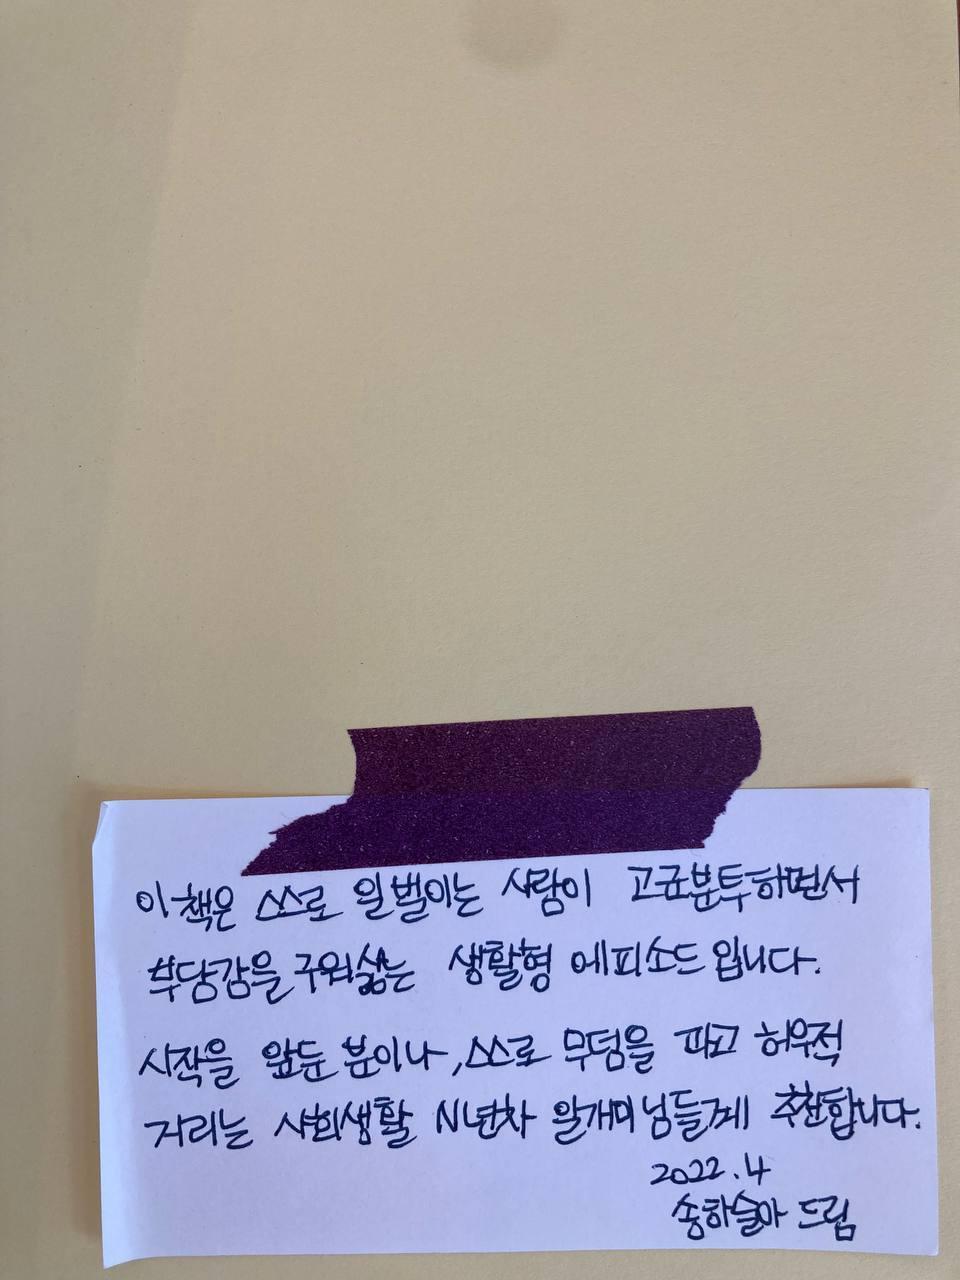 이 책은 스스로 일 벌이는 사람이 고군분투하면서
부담감을 구워삶는 생활형 에피소드입니다.
시작을 앞둔 분이나, 스스로 무덤을 파고 허우적
거리는 사회생활 N년차 일개미님들게 추천합니다.
2022.4
송하슬아 드림